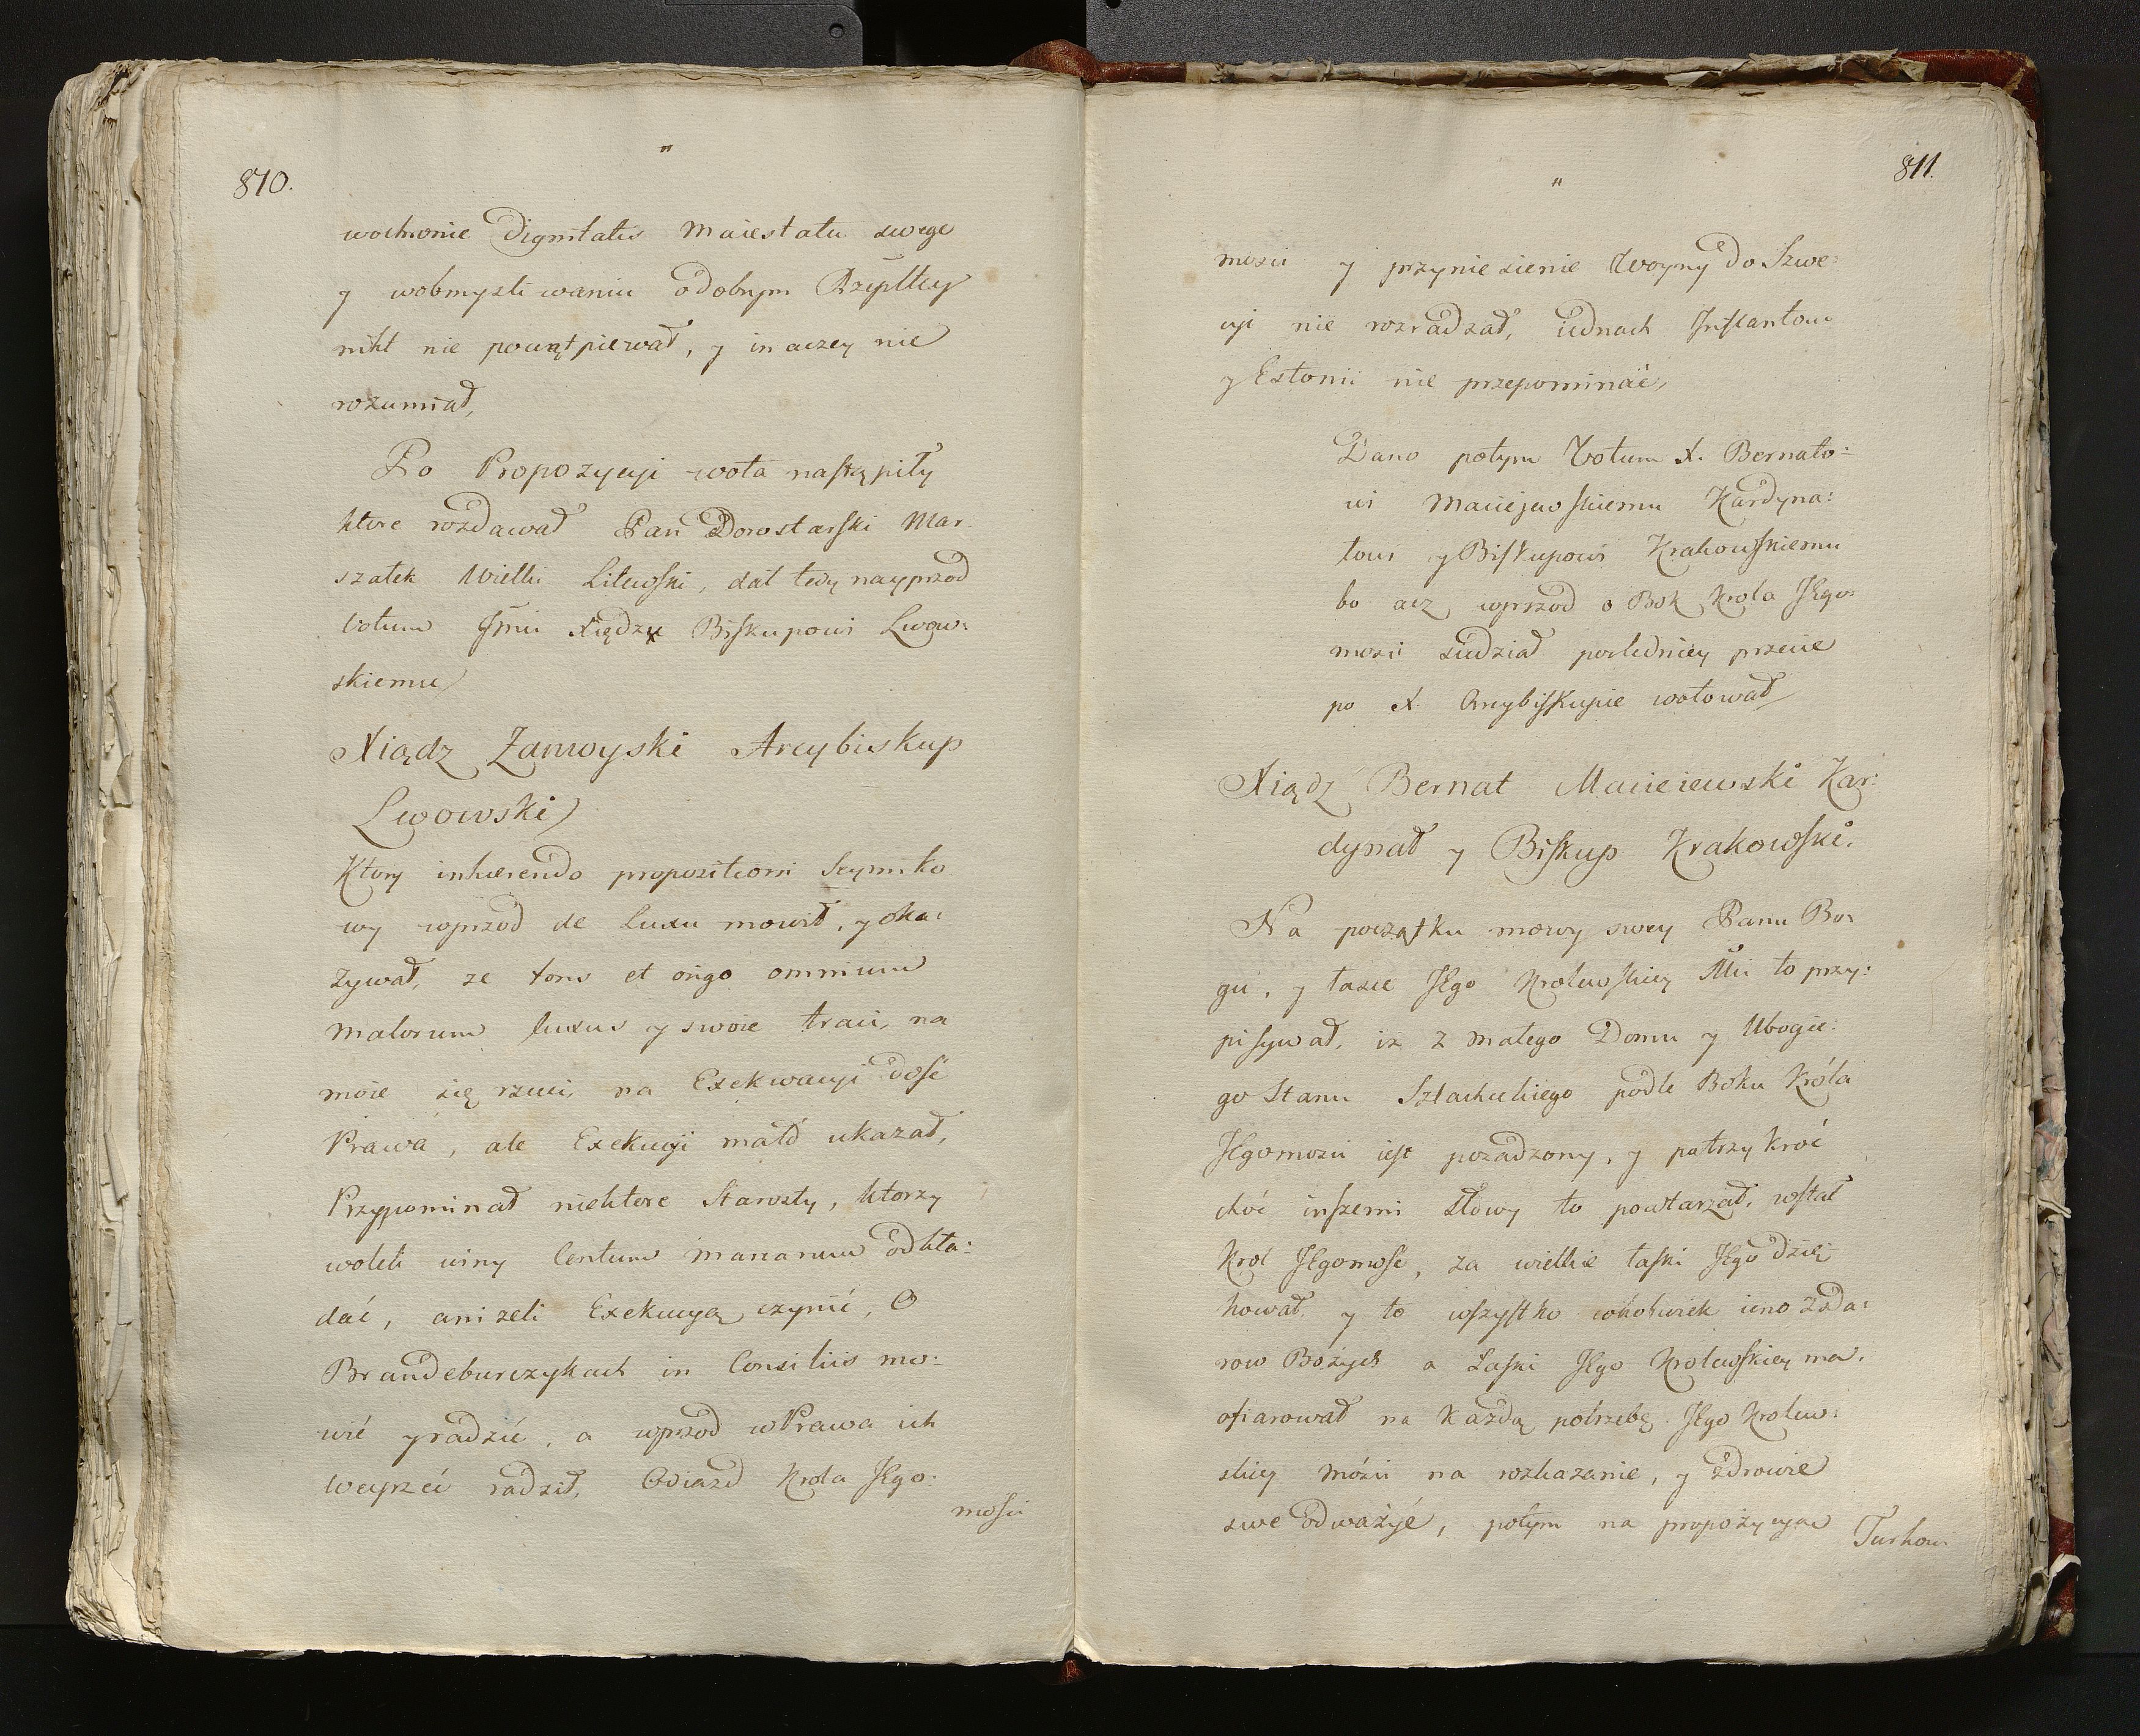 810.
"
wochronie Dignitatis Maiestatu swego
y wobmyśliwaniu o dobrym Rzypltey
nikt nie powątpiewał, y inaczey nie
rozumiał,
Po Propozycyi wota nastąpiły
ktore rozdawał Pan Dorostarski Mar
szałek Wielki Litewski, dał tedy nayprzod
votum Jmci Xiędzu Biskupowi Lwow:
skiemu
Xiądz Zamoyski Arcybiskup
Lwowski
Ktory inhærendo propozitioni Seymiko
wy wprzod de Luxu mowił, y oka:
zywał, ze fons et origo omnium
malorum luxus y swoie traci, na
moie się rzuci, na Exekwacyi dość
Prawa, ale Exekucyi mało ukazał,
Przypominał niektore Starosty, ktorzy
woleli winy Centum marcarum odkła:
dać, anizeli Exekucyą czynić, O
Brandeburczykach in Consiliis mo:
wić y radzić, a wprzod w Prawa ich
weyrzeć radził, Odiazd Krola JEgo:
mości
811.
"
mosci y przyniesienie Woyny do Szwe:
cyi nie rozradzał, iednach Inflantow
y Estonii nie przepominać,
Dano potym Votum X. Bernato:
wi Maciejowskiemu Kardyna:
łowi y Biskupowi Krakowskiemu
bo acz wprzod o Bok Krola JEgo:
mosci siedział posledniey przecie
po X. Arcybiskupie wotował
Xiądz Bernat Macieiewski Kar:
dynał y Biskup Krakowski.
Na początku mowy swey Panu Bo:
gu, y łasce JEgo Krolewskiey Mci to przy:
pisywał, iz z małego Domu y Ubogie:
go Stanu Szlacheckiego podle Boku Króla
JEgomosci iest posadzony, y potrzykroć
choć inszemi słowy to powtarzał, wstał
Krol JEgomość, za wielkie łaski JEgo dzię
kował, y to wszystko cokolwiek ieno z da:
row Bożych a Łaski JEgo Krolewskiey ma.
ofiarował na każdą potrzebę JEgo Krolew:
skiey Mości na rozkazanie, y zdrowie
swe odważyć, potym na propozycyą
Turkow: